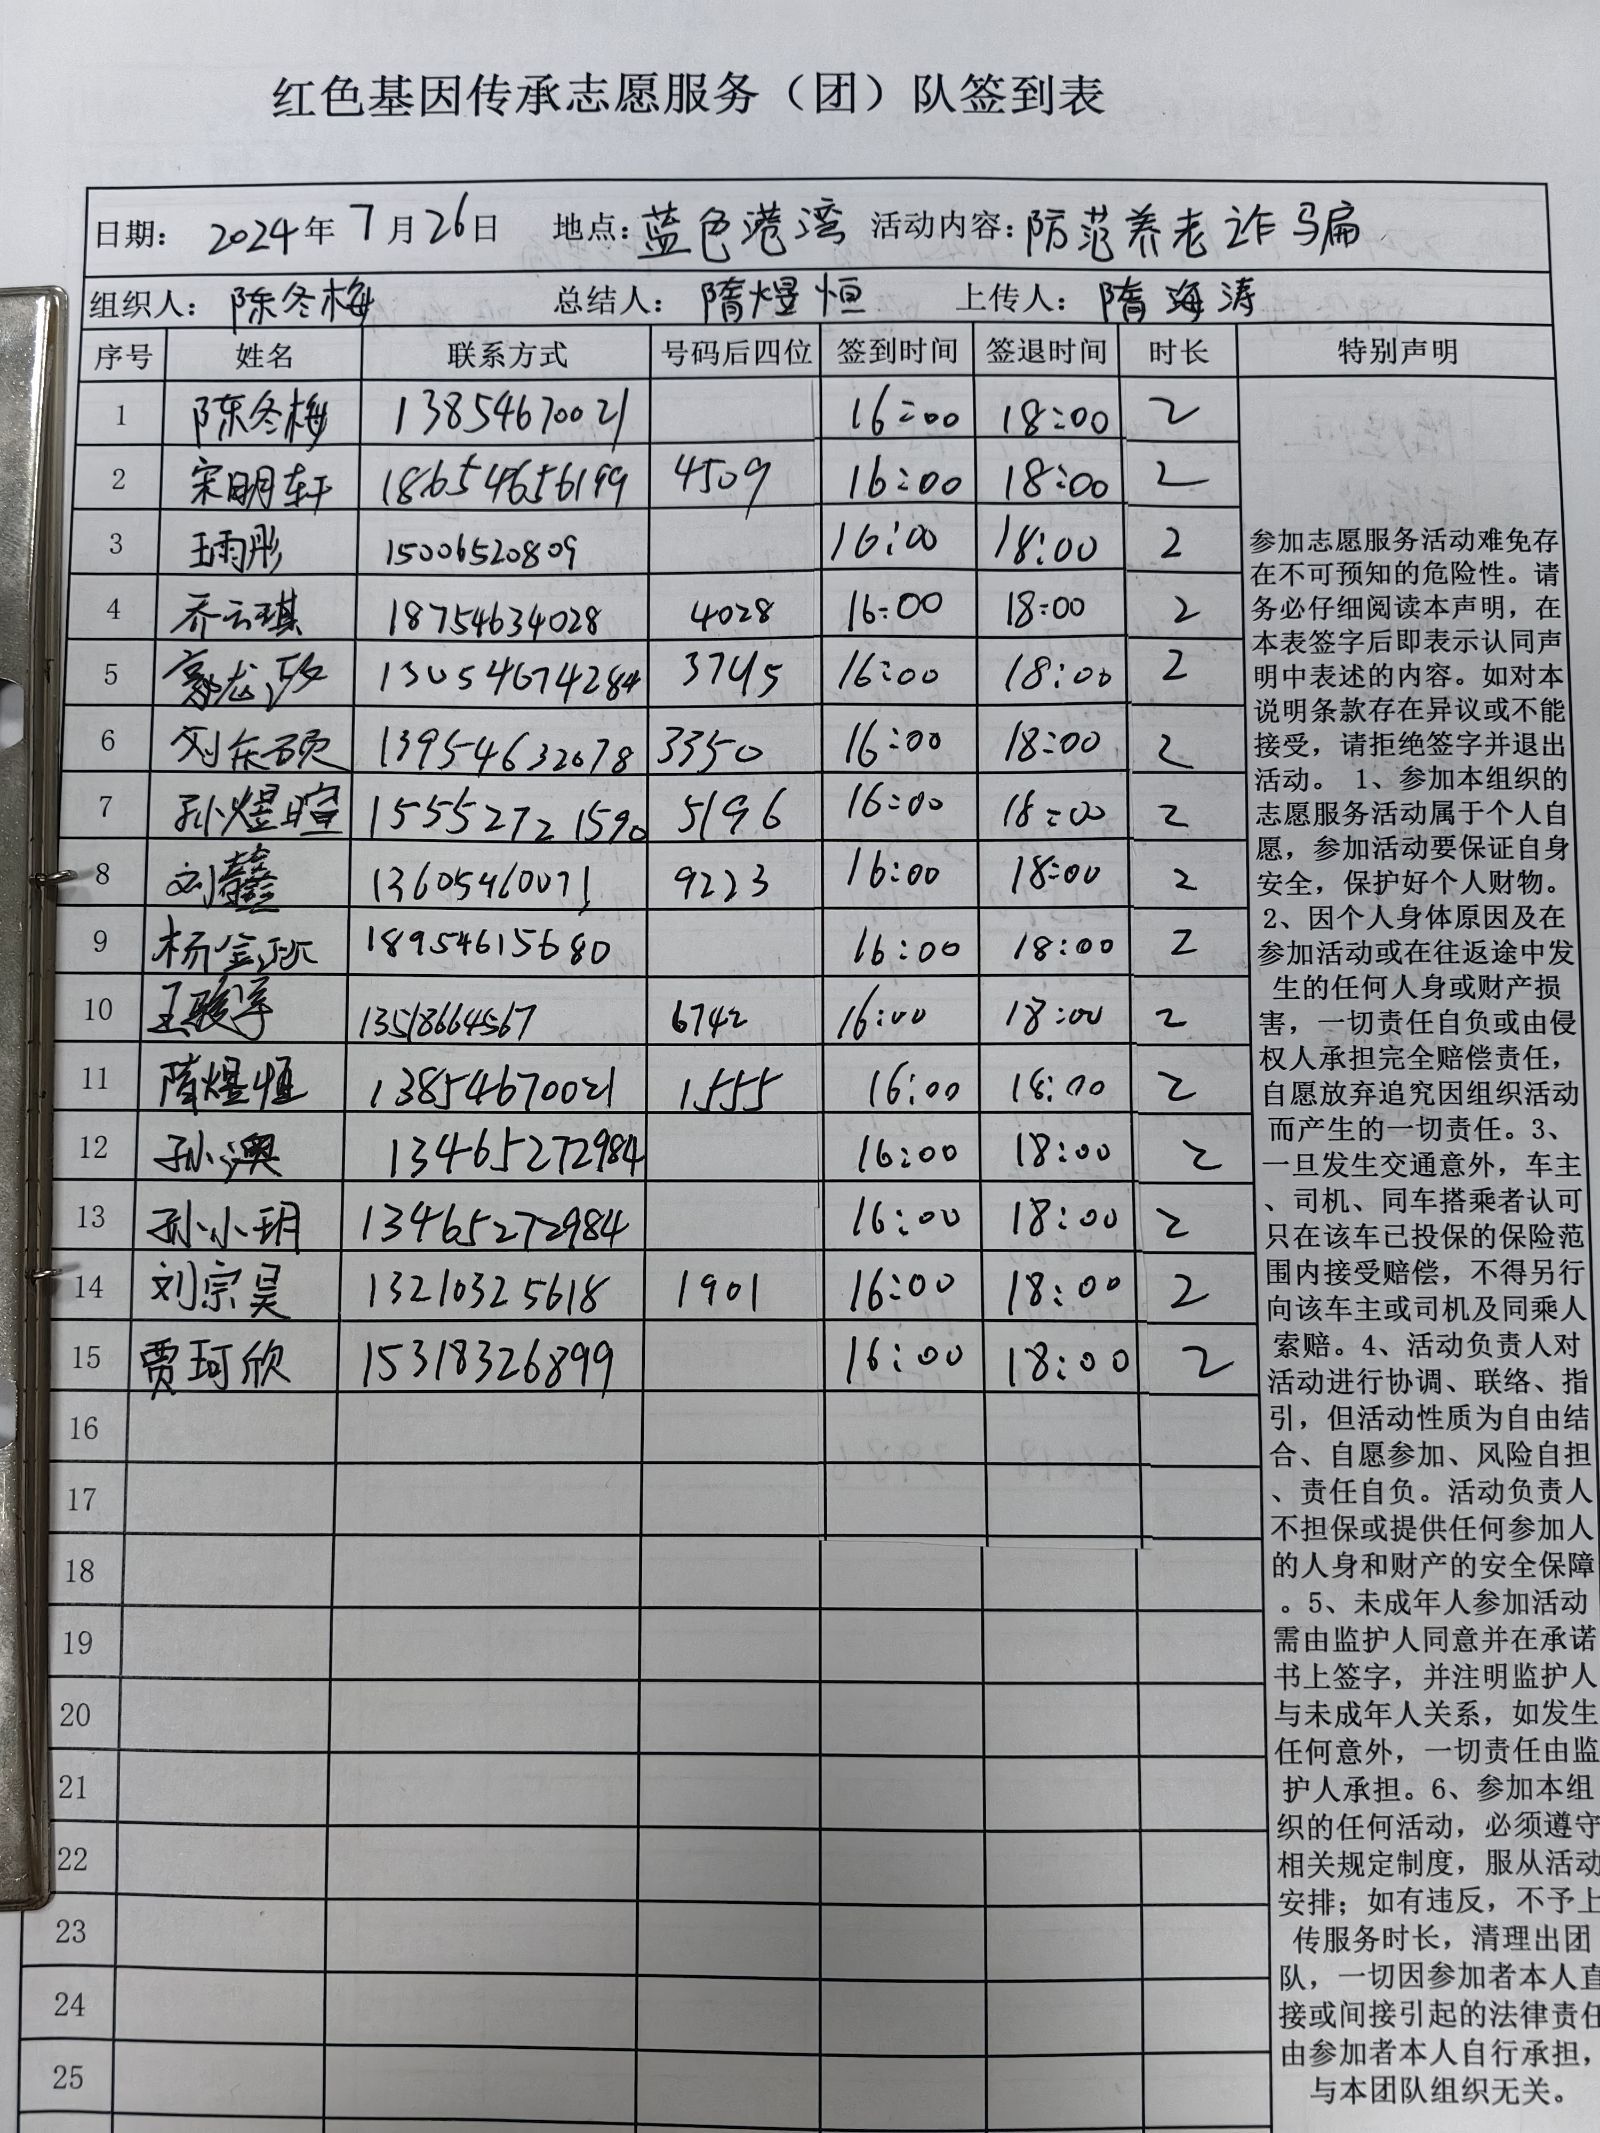 红色基因传承志愿服务（团）队签到表
日期： 2024年 7月26日 地点：蓝色港湾 活动内容：防范养老诈骗
组织人： 陈冬梅 总结人： 隋煜恒 上传人： 隋海涛
序号 姓名 联系方式 号码后四位 签到时间 签退时间 时长 特别声明
1 陈冬梅 13854670021 16:00 18:00 2
2 宋明轩 18654656199 4509 16:00 18:00 2
3 王雨彤 15006520809 16:00 18:00 2
4 乔云琪 18754634028 4028 16:00 18:00 2
5 13054674284 3745 16:00 18:00 2
6 刘东硕 13954632678 3350 16:00 18:00 2
7 孙煜暄 15552721590 5196 16:00 18:00 2
8 刘鑫 13605460071 9223 16:00 18:00 2
9 杨金 18954615680 16:00 18:00 2
10 王骏浮 13518664567 6742 16:00 18:00 2
11 隋煜恒 13854670021 1555 16:00 18:00 2
12 孙澳 13465272984 16:00 18:00 2
13 孙小玥 13465272984 16:00 18:00 2
14 刘宗昊 13210325618 1901 16:00 18:00 2
15 贾珂欣 15318326899 16:00 18:00 2
16
17
18
19
20
21
22
23
24
25
参加志愿服务活动难免存
在不可预知的危险性。请
务必仔细阅读本声明，在
本表签字后即表示认同声
明中表述的内容。如对本
说明条款存在异议或不能
接受，请拒绝签字并退出
活动。 1、参加本组织的
志愿服务活动属于个人自
愿，参加活动要保证自身
安全，保护好个人财物。
2、因个人身体原因及在
参加活动或在往返途中发
生的任何人身或财产损
害，一切责任自负或由侵
权人承担完全赔偿责任，
自愿放弃追究因组织活动
而产生的一切责任。3、
一旦发生交通意外，车主
、司机、同车搭乘者认可
只在该车已投保的保险范
围内接受赔偿，不得另行
向该车主或司机及同乘人
索赔。4、活动负责人对
活动进行协调、联络、指
引，但活动性质为自由结
合、自愿参加、风险自担
、责任自负。活动负责人
不担保或提供任何参加人
的人身和财产的安全保障
。5、未成年人参加活动
需由监护人同意并在承诺
书上签字，并注明监护人
与未成年人关系，如发生
任何意外，一切责任由监
护人承担。6、参加本组
织的任何活动，必须遵守
相关规定制度，服从活动
安排；如有违反，不予上
传服务时长，清理出团
队，一切因参加者本人直
接或间接引起的法律责任
由参加者本人自行承担，
与本团队组织无关。